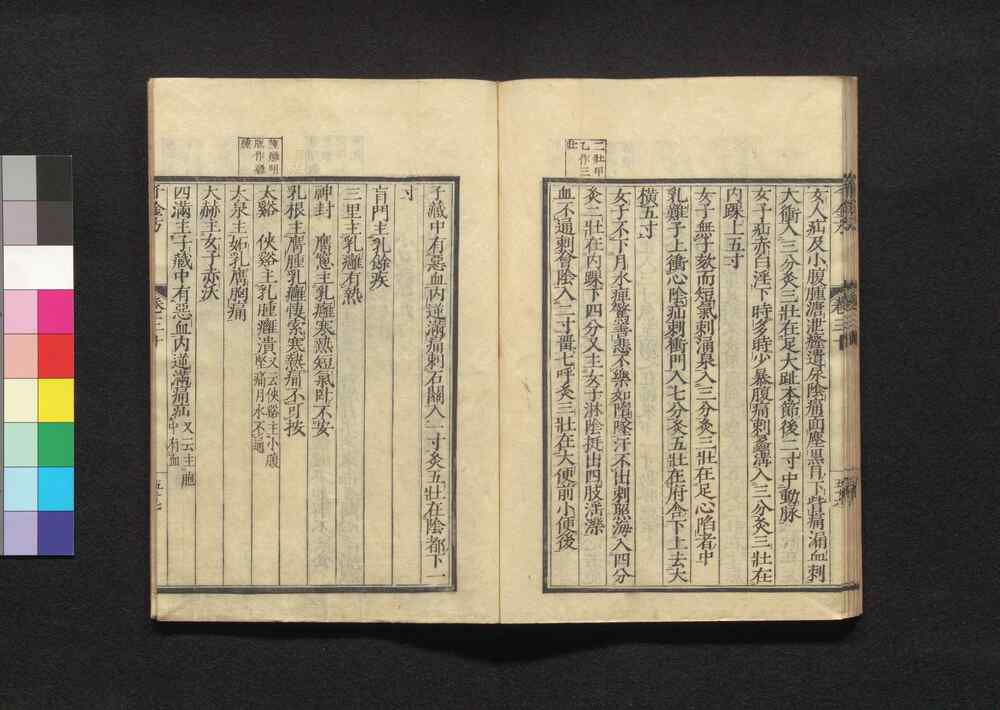 二壯甲
乙作三
壯
女人疝及小腹腫溏泄癃遺尿陰痛面塵黑目下眥痛漏血刺
大衝入三分灸三壯在足大趾本節後二寸中動脉
女子疝赤白淫下時多時少暴腹痛刺蠡溝入三分灸三壯在
内踝上五寸
女子無子欬而短氣刺涌泉入三分灸三壯在足心陷者中
乳難子上衝心陰疝刺衝門入七分灸五壯在府舍下上去大
橫五寸
女子不下月水痺驚善悲不樂如墮墜汗不出刺照海入四分
灸二壯在内踝下四分又主女子淋陰挺出四肢淫濼
血不通刺會陰入二寸留七呼灸三壯在大便前小便後
子藏中有惡血内逆滿痛刺石關入一寸灸五壯在陰都下一
寸
肓門主乳餘疾
三里主乳癰有熱
神封 膺窻主乳癰寒熱短氣卧不安
乳根主膺腫乳癰悽索寒熱痛不可按
太谿 俠谿主乳腫癰潰 又云俠谿主小腹
堅痛月水不通
太泉主妬乳膺胸痛
大赫主女子赤沃
四滿主子藏中有惡血内逆滿痛疝 又云主胞
中有血
卷三十